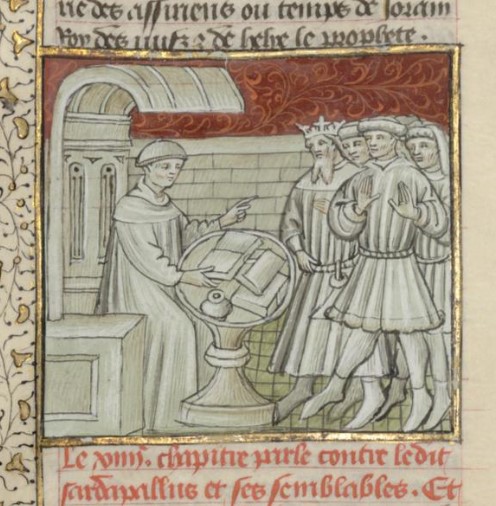 rie des assiriens ou temps de Joram
Roy des iuifz & de helye le prophete.
Le xiiii. chapitre parle contre ledit
sardapallus et ses semblables. Et